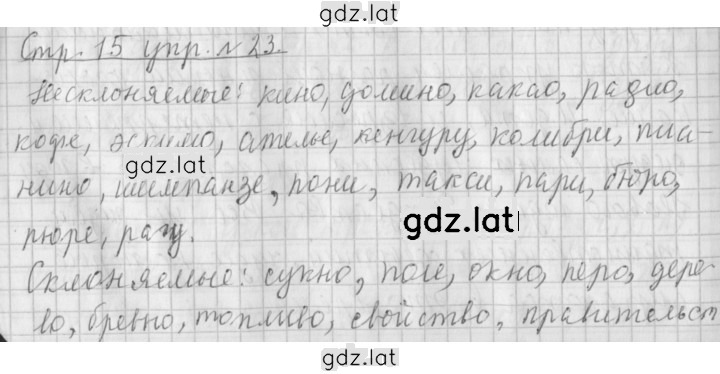 gdz.lat
Стр. 15 упр. № 23.
Несклоняемые: кино, домино, какао, радио,
кофе, эскимо, ателье, кенгуру, колибри, пиа-
gdz.lat
нино, шимпанзе, пони, такси, пари, бюро,
gdz.lat
пюре, рагу.
Склоняемые: сукно, поле, окно, перо, дере-
во, бревно, топливо, свойство, правительст
gdz.lat